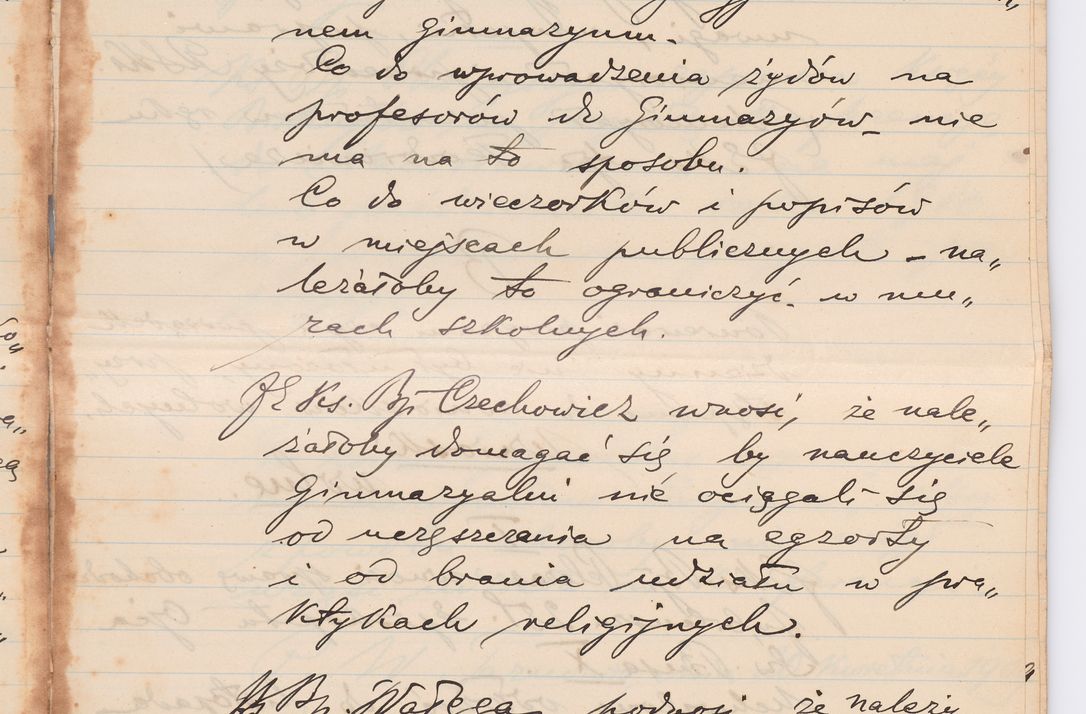 nem gimnazyum.
Co do wprowadzenia żydów na
profesorów do Gimnazyów_ nie
ma na to sposobu.
Co do wieczorków i popisów
w miejscach publicznych - na„
leżałoby to ograniczyć w mu„
rach szkolnych.
JE Ks. Bp Czechowicz wnosi, że nale„
żałoby domagać się, by nauczyciele
Gimnazyalni nie ociągali się
od uczęszczania na egzorty
i od brania udziału w pra„
ktykach religijnych.
Bp. Wałęga podnosi że należy